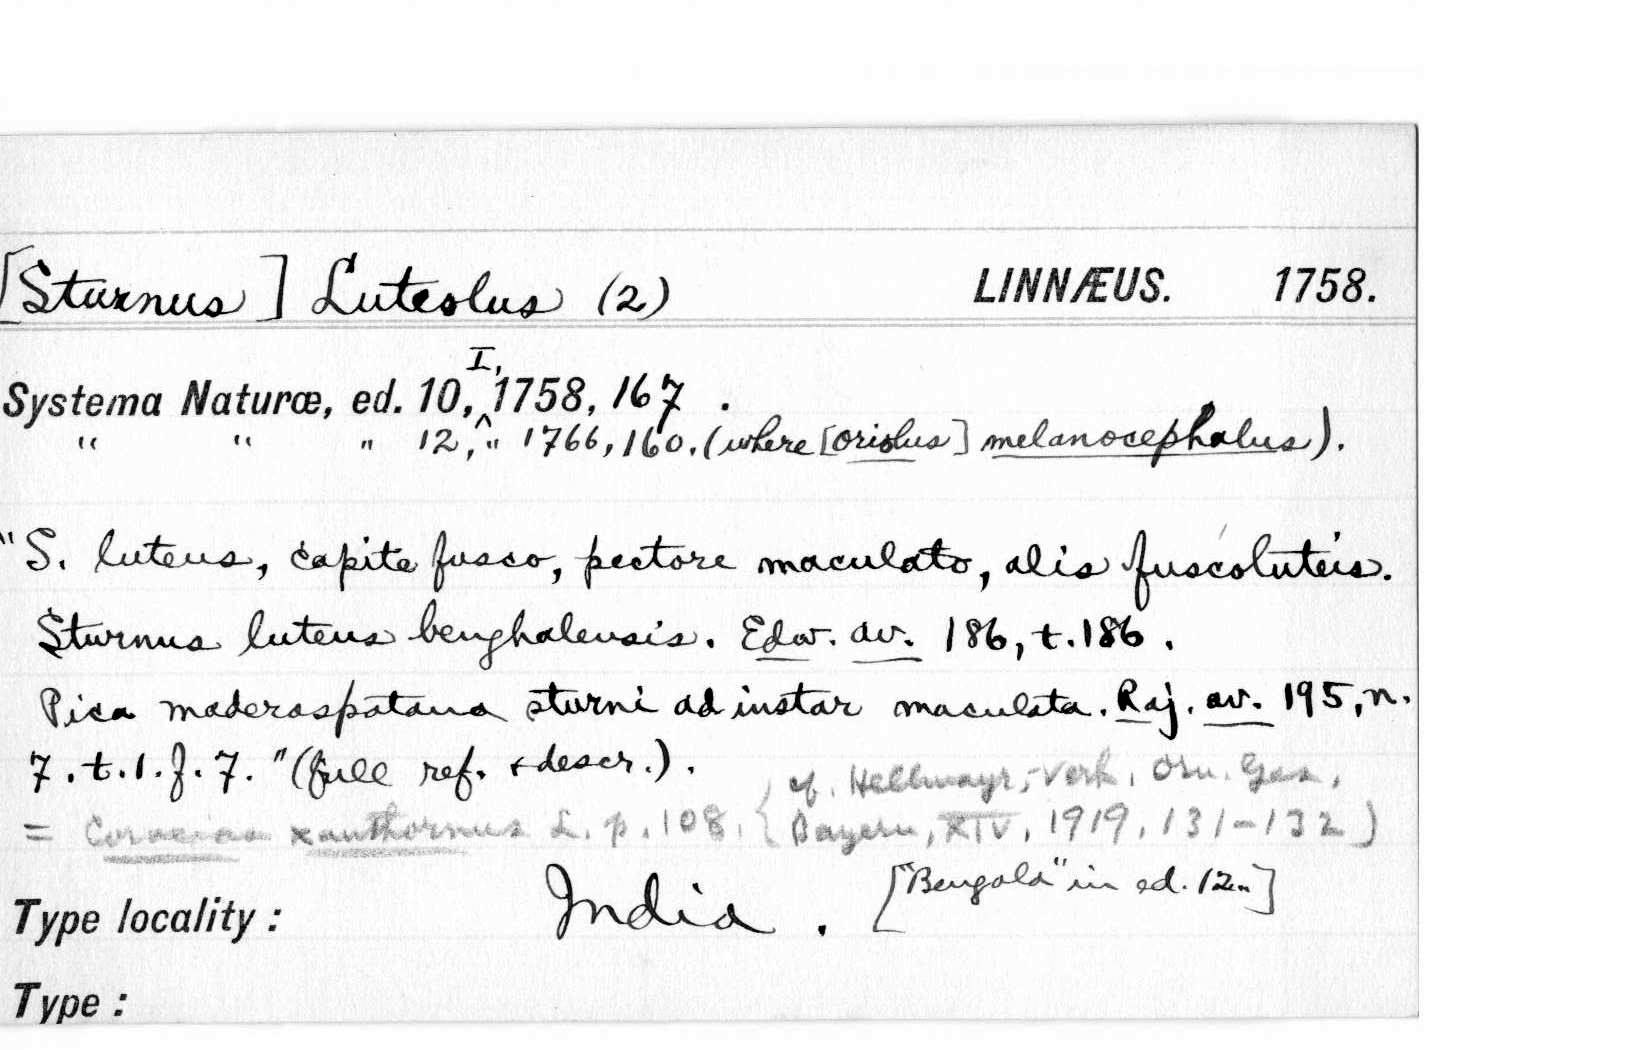 [Sturnus] Luteolus (2) LINNÆUS. 1758.
Systema Naturæ, ed. 10, I, 1758, 167 .
" " " 12, " 1766, 160. (where [oriolus] melanocephalus).
"S. luteus, capite fusco, pectore maculato, alis fuscoluteis.
Sturnus luteus benghalensis. Edw. av. 186, t. 186 .
Pica maderaspatana sturni ad instar maculata. Raj. av. 195, n.
7. t. 1. f. 7. " (full ref. + descr.).
{ cf. Hellmayr, Verh. Orn. Ges.
= Coracias xanthornus L. p. 108. { Bayern, XIV, 1919, 131-132 )
Type locality: India . ["Bengala" in ed. 12.]
Type: